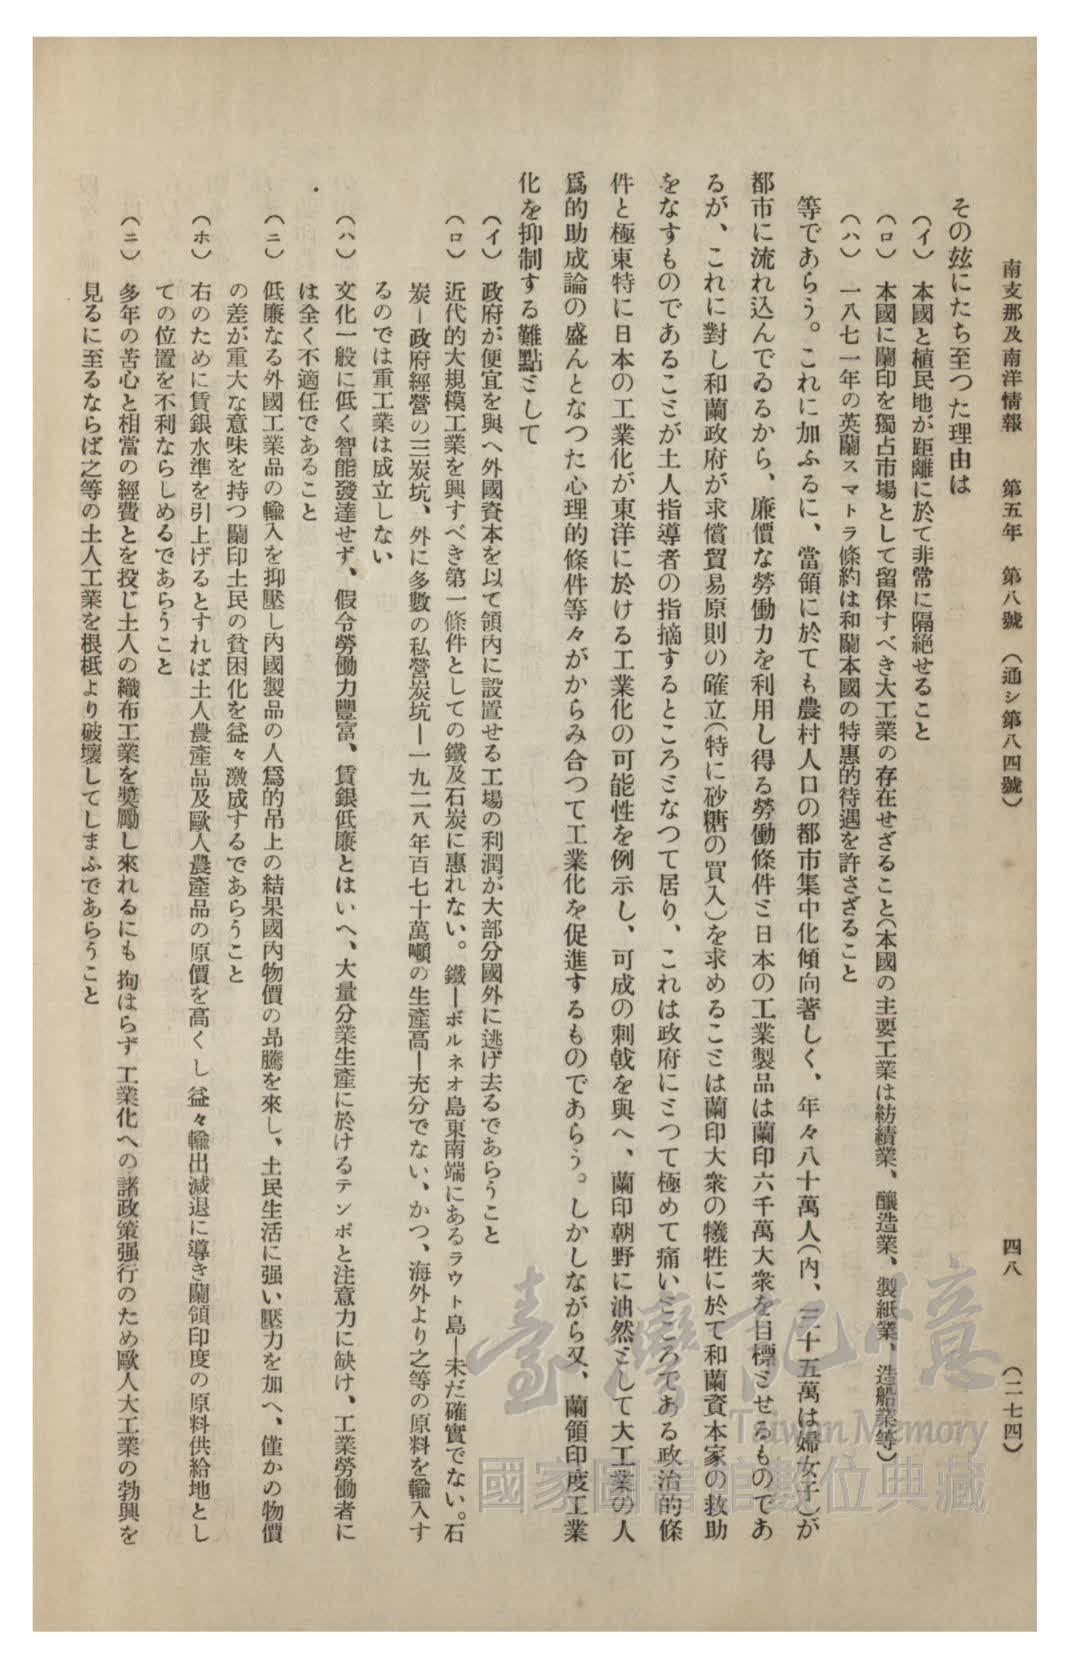 南支那及南洋情報　第五年　第八號　（通シ第八四號）　四八　（二七四）
その玆にたち至つた理由は
（イ）　本國と植民地が距離に於て非常に隔絶せること
（ロ）　本國に蘭印を獨占市場として留保すべき大工業の存在せざること（本國の主要工業は紡績業、釀造業、製紙業、造船業等）
（ハ）　一八七一年の英蘭スマトラ條約は和蘭本國の特惠的待遇を許さざること
等であらう。これに加ふるに、當領に於ても農村人口の都市集中化傾向著しく、年々八十萬人（内、三十五萬は婦女子）が
都市に流れ込んでゐるから、廉價な勞働力を利用し得る勞働條件ミ日本の工業製品は蘭印六千萬大衆を目標ミせるものであ
るが、これに對し和蘭政府が求償貿易原則の確立（特に砂糖の買入）を求めることミは蘭印大衆の犧牲に於て和蘭資本家の救助
をなすものであるこミが土人指導者の指摘するところミなつて居り、これは政府にミつて極めて痛いミころである政治的條
件と極東特に日本の工業化が東洋に於ける工業化の可能性を例示し、可成の刺戟を與へ、蘭印朝野に油然ミして大工業の人
爲的助成論の盛んとなつた心理的條件等々がからみ合つて工業化を促進するものであらう。しかしながら又、蘭領印度工業
化を抑制する難點ミして
（イ）　政府が便宜を與へ外國資本を以て領内に設置せる工場の利潤が大部分國外に逃げ去るであらうこと
（ロ）　近代的大規模工業を興すべき第一條件としての鐵及石炭に惠れない。鐵―ボルネオ島東南端にあるラウト島―未だ確實でない。石
炭―政府經營の三炭坑、外に多數の私營炭坑―一九二八年百七十萬噸の生產高―充分でない、かつ、海外より之等の原料を輸入す
るのでは重工業は成立しない
（ハ）　文化一般に低く智能發達せず、假令勞働力豐富、賃銀低廉とはいへ、大量分業生產に於けるテンポと注意力に缺け、工業勞働者に
は全く不適任であること
（ニ）　低廉なる外國工業品の輸入を抑壓し內國製品の人爲的吊上の結果國內物價の昂騰を來し、土民生活に强い壓力を加へ、僅かの物價
の差が重大な意味を持つ蘭印土民の貧困化を益々激成するであらうこと
（ホ）　右のために賃銀水準を引上げるとすれば土人農產品及歐人農產品の原價を高くし益々輸出減退に導き蘭領印度の原料供給地とし
ての位置を不利ならしめるであらうこと
（ニ）　多年の苦心と相當の經費とを投じ土人の織布工業を獎勵し來れるにも拘はらず工業化への諸政策强行のため歐人大工業の勃興を
見るに至るならば之等の土人工業を根柢より破壞してしまふであらうこと
臺灣記憶
Taiwan Memory
國家圖書館數位典藏